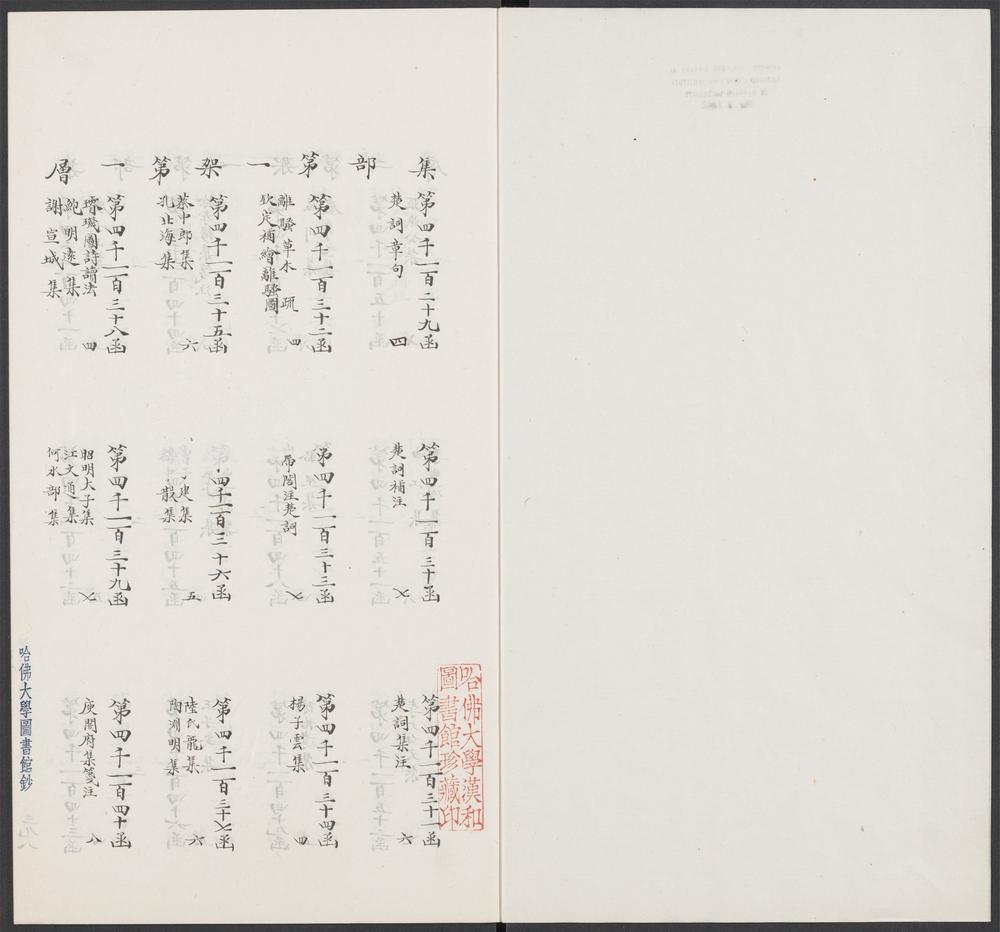 集部第一架第一層
第四千一百二十九函
楚詞章句
四
第四千一百三十函
楚詞補注
七
第四千一百三十一函
楚詞集注
六
第四千一百三十二函
離騷草木疏
欽定補繪離騷圖
四
第四千一百三十三函
楚詞
七
第四千一百三十四函
揚子雲集
四
第四千一百三十五函
蔡中郎集
孔北海集
六
四千一百三十六函
子建集
散集
五
第四千一百三十七函
陸氏龍集
陶淵明集
六
第四千一百三十八函
璿璣圖詩讀法
鮑明遠集
謝宣城集
四
第四千一百三十九函
昭明太子集
江文通集
何水部集
七
第四千一百四十函
庾開府集箋注
八
哈佛大學漢和
圖書館珍藏印
哈佛大學圖書館鈔